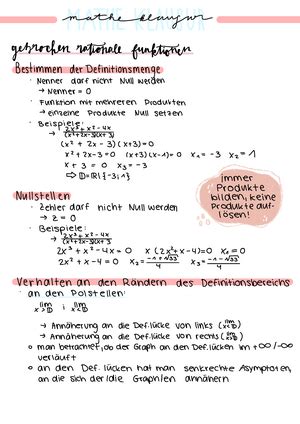 MATHE KLAUSUR
mathe klausur
gebrochen rationale funktionen
Bestimmen der Definitionsmenge
· Nenner darf nicht Null werden
→ Nenner = 0
· Funktion mit mehreren Produkten
→ einzelne Produkte Null setzen
· Beispiele:
→ 2x³+x²-4x / (x²+2x-3)(x+3)
(x²+2x-3)(x+3)=0
x²+2x-3=0 (x+3)(x-1)=0 x₁=-3 x₂=1
x+3=0 x₃=-3
⇨ D=ℝ\{-3;1}
immer
Produkte
bilden, keine
Produkte auf-
lösen!
Nullstellen
· Zähler darf nicht Null werden
→ Z = 0
· Beispiele:
→ 2x³+x²-4x / (x²+2x-3)(x+3)
2x³+x²-4x=0 x(2x²+x-4)=0 x₁=0
2x²+x-4=0 x₂=(-1+√33)/4 x₃=(-1-√33)/4
Verhalten an den Rändern des Definitionsbereichs
· an den Polstellen:
lim ; lim
→ Annäherung an die Def.lücke von links (lim)
→ Annäherung an die Def.lücke von rechts (lim)
o man betrachtet, ob der Graph an den Def.lücken im +∞/-∞
verläuft
o an den Def.lücken hat man senkrechte Asymptoten,
an die sich der/die Graph/en annähern